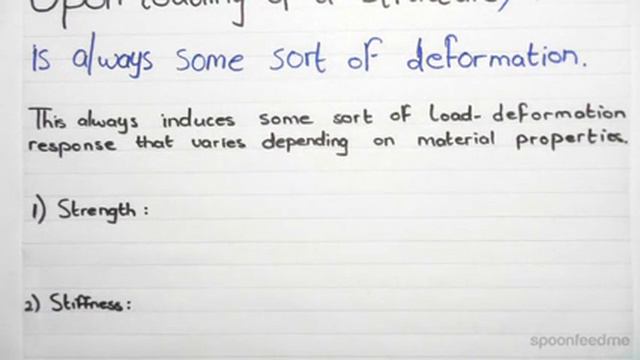 Upon loading of a structure,
is always some sort of deformation.
This always induces some sort of load-deformation
response that varies depending on material properties.
1) Strength :
2) Stiffness:
spoonfeedme